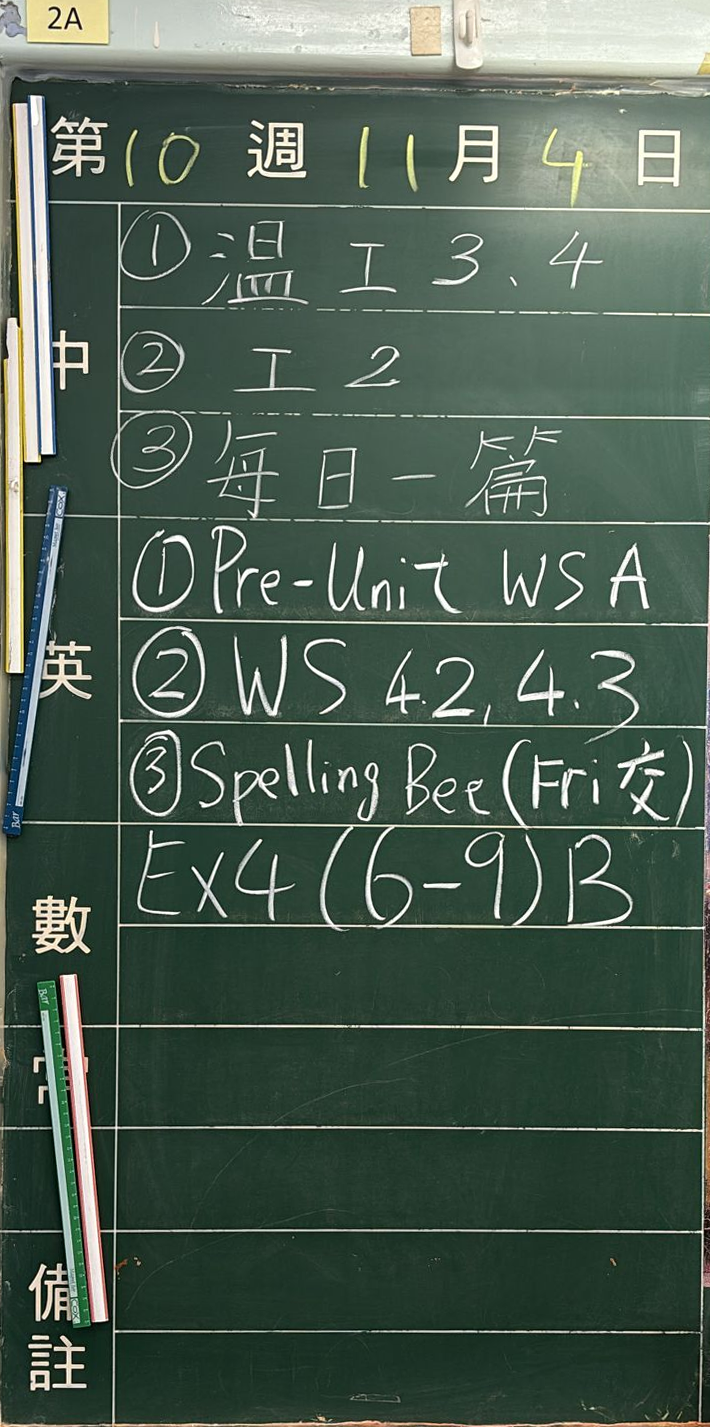 2A
第10週 11月4日
中
① 温工3、4
② 工2
③ 每日一篇
英
① Pre-Unit WS A
② WS 4.2, 4.3
③ Spelling Bee (Fri 交)
數
Ex4 (6-9) B
常
備註